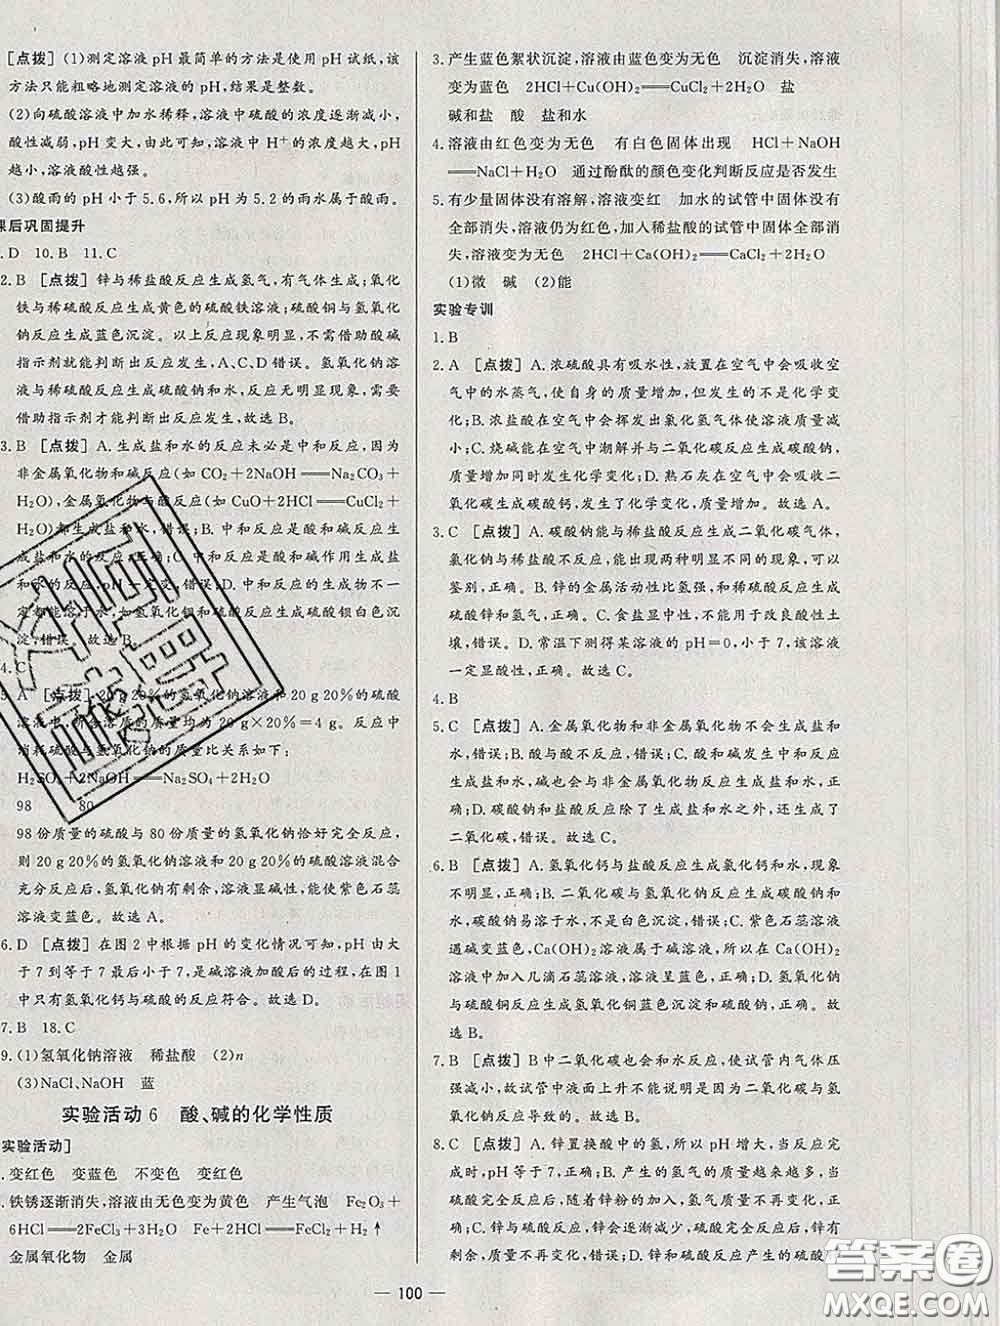 [点拨] (1)测定溶液 pH 最简单的方法是使用 pH 试纸,该
方法只能粗略地测定溶液的 pH,结果是整数。
(2)向硫酸溶液中加水稀释,溶液中硫酸的浓度逐渐减小,
酸性减弱,pH 变大,由此可知,溶液中 H⁺的浓度越大,pH
越小,溶液酸性越强。
(3)酸雨的 pH 小于 5.6,所以 pH 为 5.2 的雨水属于酸雨。
课后巩固提升
.D 10.B 11.C
2.B [点拨] 锌与稀盐酸反应生成氢气,有气体生成;氧化
铁与稀硫酸反应生成黄色的硫酸铁溶液;硫酸铜与氢氧化
钠反应生成蓝色沉淀。以上反应现象明显,不需借助酸碱
指示剂就能判断出反应发生,A、C、D 错误。氢氧化钠溶
液与稀硫酸反应生成硫酸钠和水,反应无明显现象,需要
借助指示剂才能判断出反应发生,故选 B。
3.B [点拨] A.生成盐和水的反应未必是中和反应,因为
非金属氧化物和碱反应(如 CO₂+2NaOH══Na₂CO₃+
H₂O),金属氧化物与酸反应(如 CuO+2HCl══CuCl₂+
H₂O)都生成盐和水,错误;B.中和反应是酸和碱反应生
成盐和水的反应,正确;C.中和反应是酸和碱作用生成盐
和水的反应,pH 一定变,错误;D.中和反应的生成物不一
定都能溶于水,如氢氧化钡和硫酸反应生成硫酸钡白色沉
淀,错误。故选 B。
4.C
5.A [点拨] 20 g 20%的氢氧化钠溶液和 20 g 20%的硫酸
溶液中,所含溶质的质量均为 20 g×20%=4 g。反应中
消耗硫酸与氢氧化钠的质量比关系如下:
H₂SO₄+2NaOH══Na₂SO₄+2H₂O
98 80
98 份质量的硫酸与 80 份质量的氢氧化钠恰好完全反应,
则 20 g 20%的氢氧化钠溶液和 20 g 20%的硫酸溶液混合
充分反应后,氢氧化钠有剩余,溶液显碱性,能使紫色石蕊
溶液变蓝色。故选 A。
6.D [点拨] 在图 2 中根据 pH 的变化情况可知,pH 由大
于 7 到等于 7 最后小于 7,是碱溶液加酸后的过程,在图 1
中只有氢氧化钙与硫酸的反应符合。故选 D。
7.B 18.C
9.(1)氢氧化钠溶液 稀盐酸 (2)n
(3)NaCl、NaOH 蓝
实验活动 6 酸、碱的化学性质
实验活动]
.变红色 变蓝色 不变色 变红色
.铁锈逐渐消失,溶液由无色变为黄色 产生气泡 Fe₂O₃+
6HCl══2FeCl₃+3H₂O Fe+2HCl══FeCl₂+H₂↑
金属氧化物 金属
3.产生蓝色絮状沉淀,溶液由蓝色变为无色 沉淀消失,溶液
变为蓝色 2HCl+Cu(OH)₂══CuCl₂+2H₂O 盐
碱和盐 酸 盐和水
4.溶液由红色变为无色 有白色固体出现 HCl+NaOH
══NaCl+H₂O 通过酚酞的颜色变化判断反应是否发生
5.有少量固体没有溶解,溶液变红 加水的试管中固体没有
全部消失,溶液仍为红色,加入稀盐酸的试管中固体全部
消失,溶液变为无色 2HCl+Ca(OH)₂══CaCl₂+2H₂O
(1)微 碱 (2)能
实验专训
1.B
2.A [点拨] A.浓硫酸具有吸水性,放置在空气中会吸收空
气中的水蒸气,使自身的质量增加,但发生的不是化学变
化;B.浓盐酸在空气中会挥发出氯化氢气体使溶液质量减
小;C.烧碱能在空气中潮解并与二氧化碳生成碳酸钠,质量
增加同时发生化学变化;D.熟石灰在空气中能够吸收二
氧化碳生成碳酸钙,发生了化学变化,质量增加。故选 A。
3.C [点拨] A.碳酸钠能与稀盐酸反应生成二氧化碳气体,
氯化钠与稀盐酸不反应,能出现两种明显不同的现象,可以
鉴别,正确。B.锌的金属活动性比氢强,和稀硫酸反应生成
硫酸锌和氢气,正确。C.食盐显中性,不能用于改良酸性土
壤,错误。D.常温下测得某溶液的 pH=0,小于 7,该溶液
一定显酸性,正确。故选 C。
4.B
5.C [点拨] A.金属氧化物和非金属氧化物不会生成盐和
水,错误;B.酸与酸不反应,错误;C.酸和碱发生中和反应生
成盐和水,碱也会与非金属氧化物反应生成盐和水,正
确;D.碳酸钠和盐酸反应除了生成盐和水之外,还生成了
二氧化碳,错误。故选 C。
6.B [点拨] A.氢氧化钙与盐酸反应生成氯化钙和水,现象
不明显,正确;B.二氧化碳与氢氧化钠反应生成碳酸钠和
水,碳酸钠易溶于水,不是白色沉淀,错误;C.紫色石蕊溶液
遇碱变蓝色,Ca(OH)₂溶液属于碱溶液,所以在 Ca(OH)₂
溶液中加入几滴石蕊溶液,溶液呈蓝色,正确;D.氢氧化钠
与硫酸铜反应生成氢氧化铜蓝色沉淀和硫酸钠,正确。故
选 B。
7.B [点拨] B 中二氧化碳也会和水反应,使试管内气体压
强减小,故试管中液面上升不能说明是因为二氧化碳与氢
氧化钠反应导致的。故选 B。
8.C [点拨] A.锌置换酸中的氢,所以 pH 增大,当反应完
成时,pH 等于 7,正确;B.产生的氢气的质量越来越多,当
硫酸完全反应后,随着锌粉的加入,氢气质量不再变化,正
确;C.锌与硫酸反应,锌会逐渐减少,硫酸完全反应,锌有
剩余,质量不再变化,错误;D.锌和硫酸反应产生的硫酸
— 100 —
答案圈
MXQE.COM